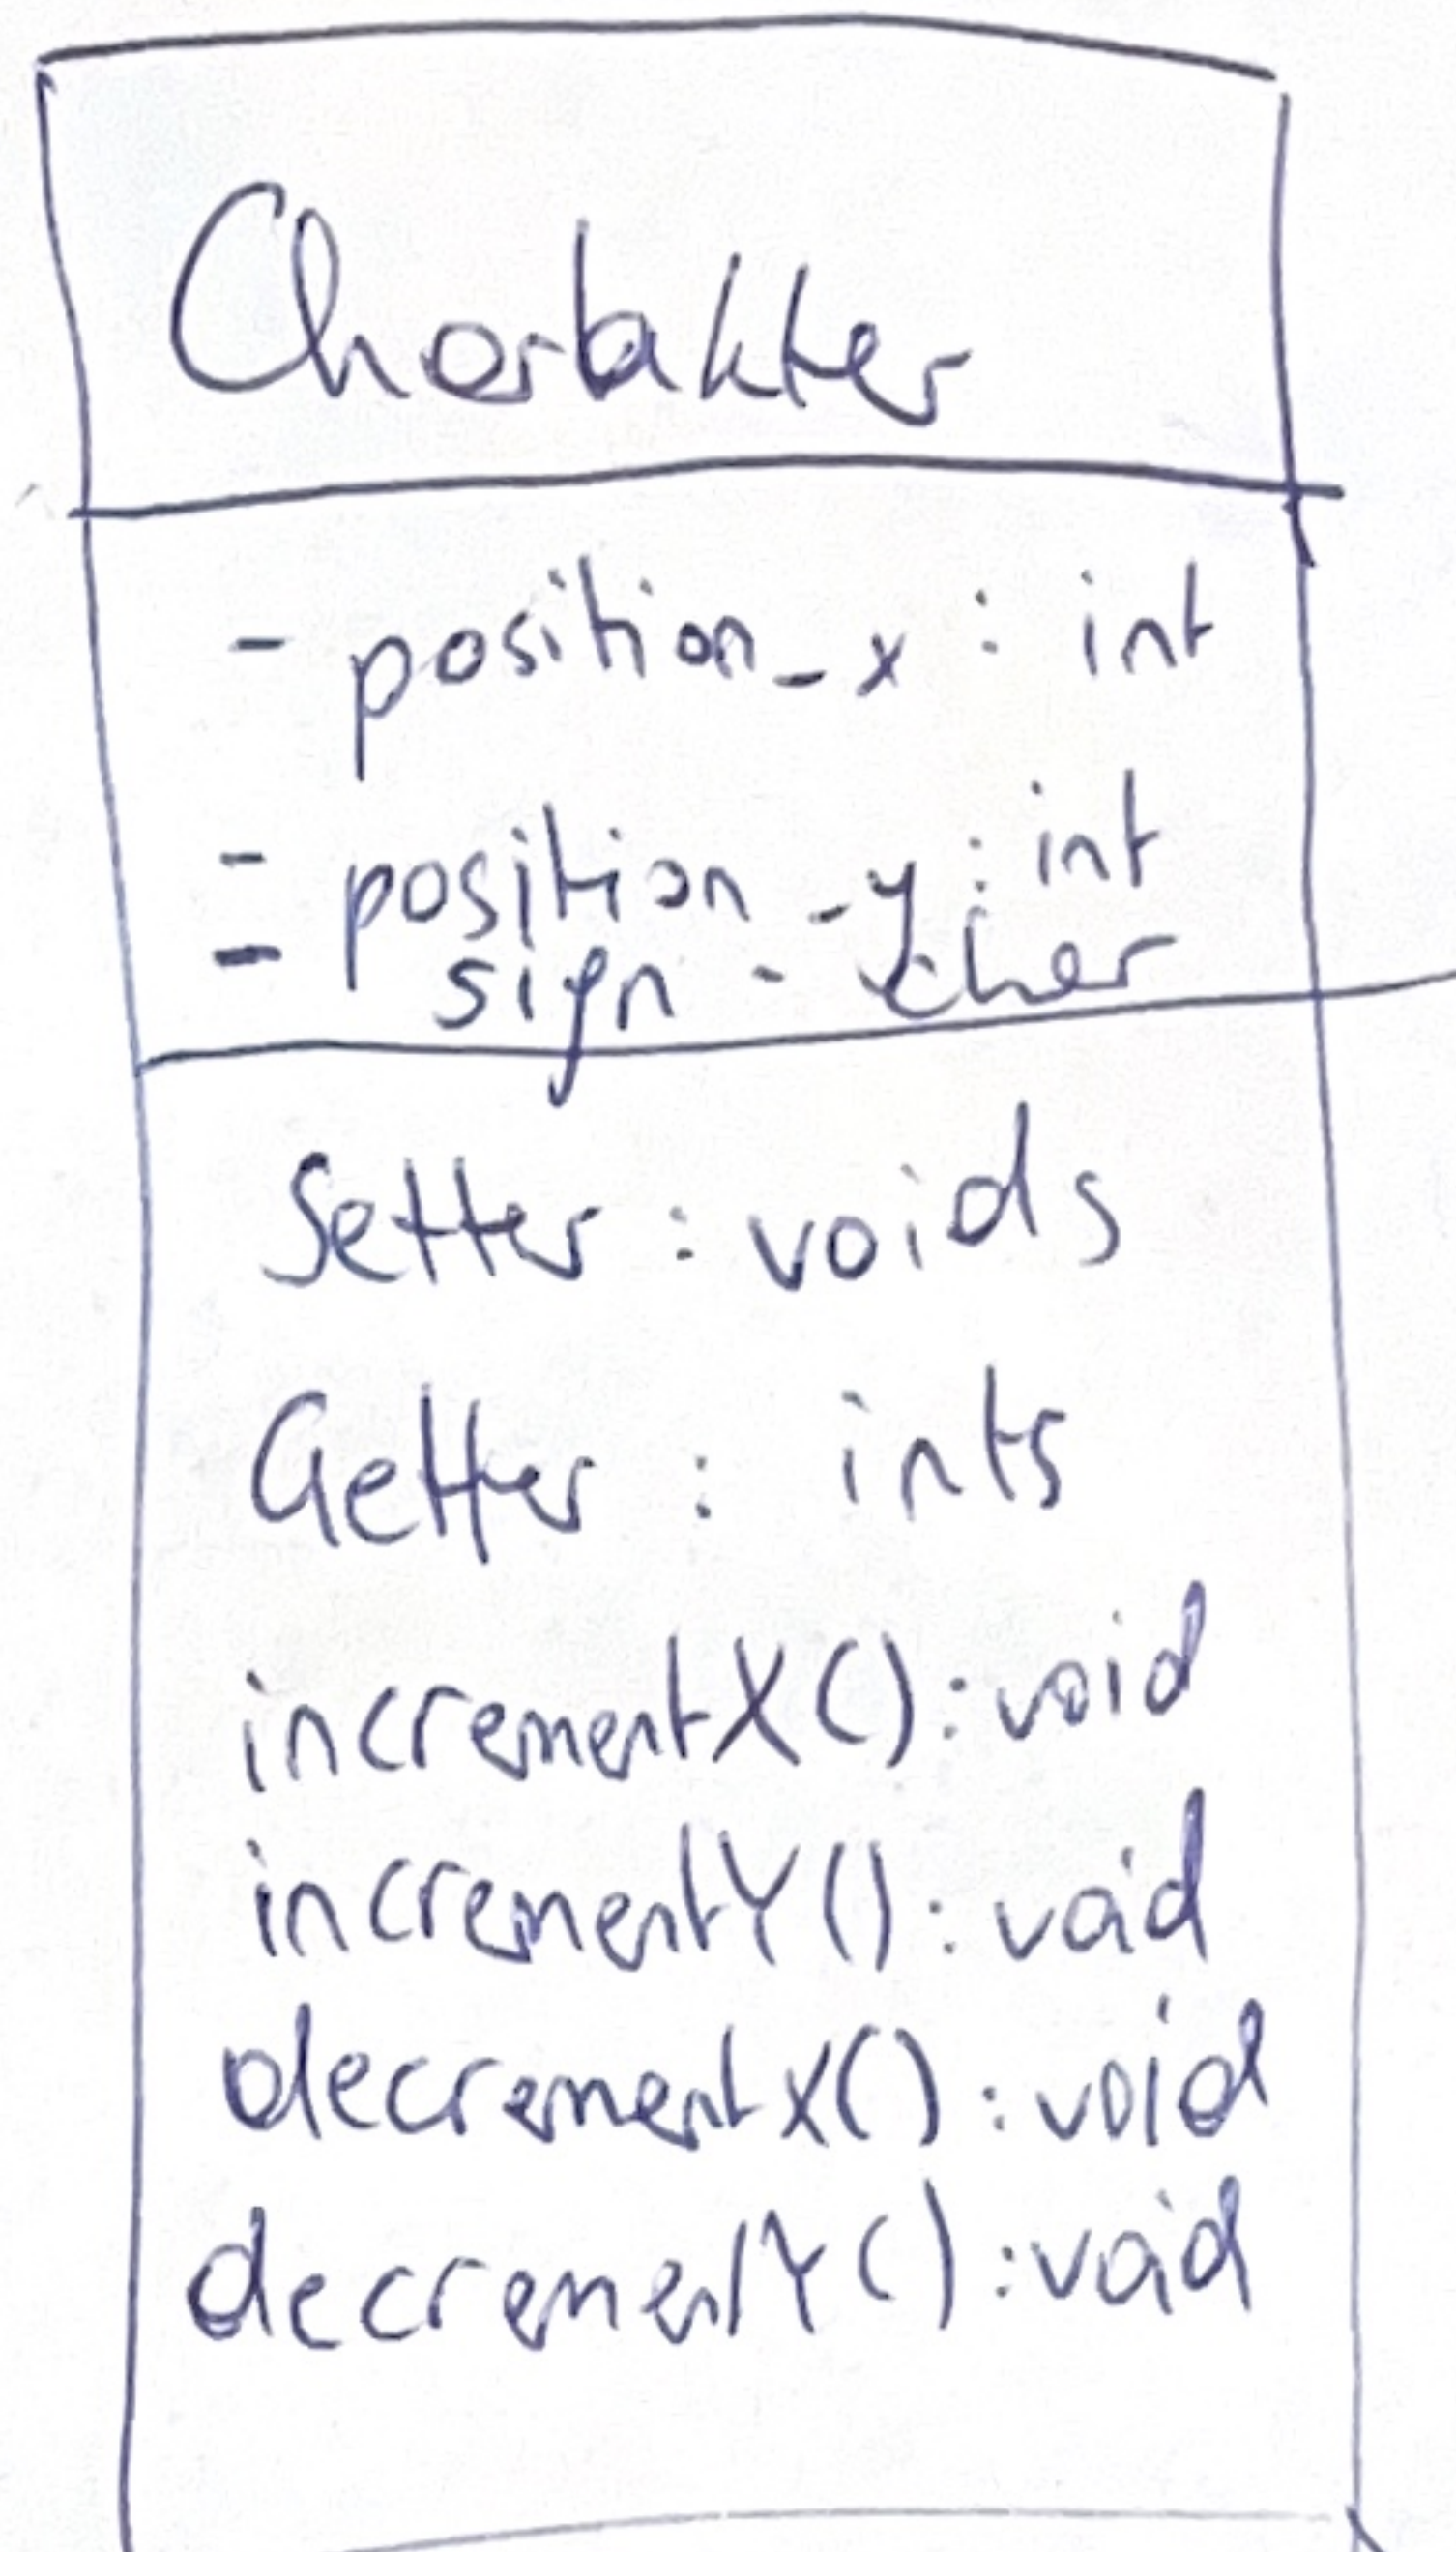 Charakter
- position_x : int
- position_y : int
- sign - char
Setter : voids
Getter : ints
incrementX() : void
incrementY() : void
decrementX() : void
decrementY() : void